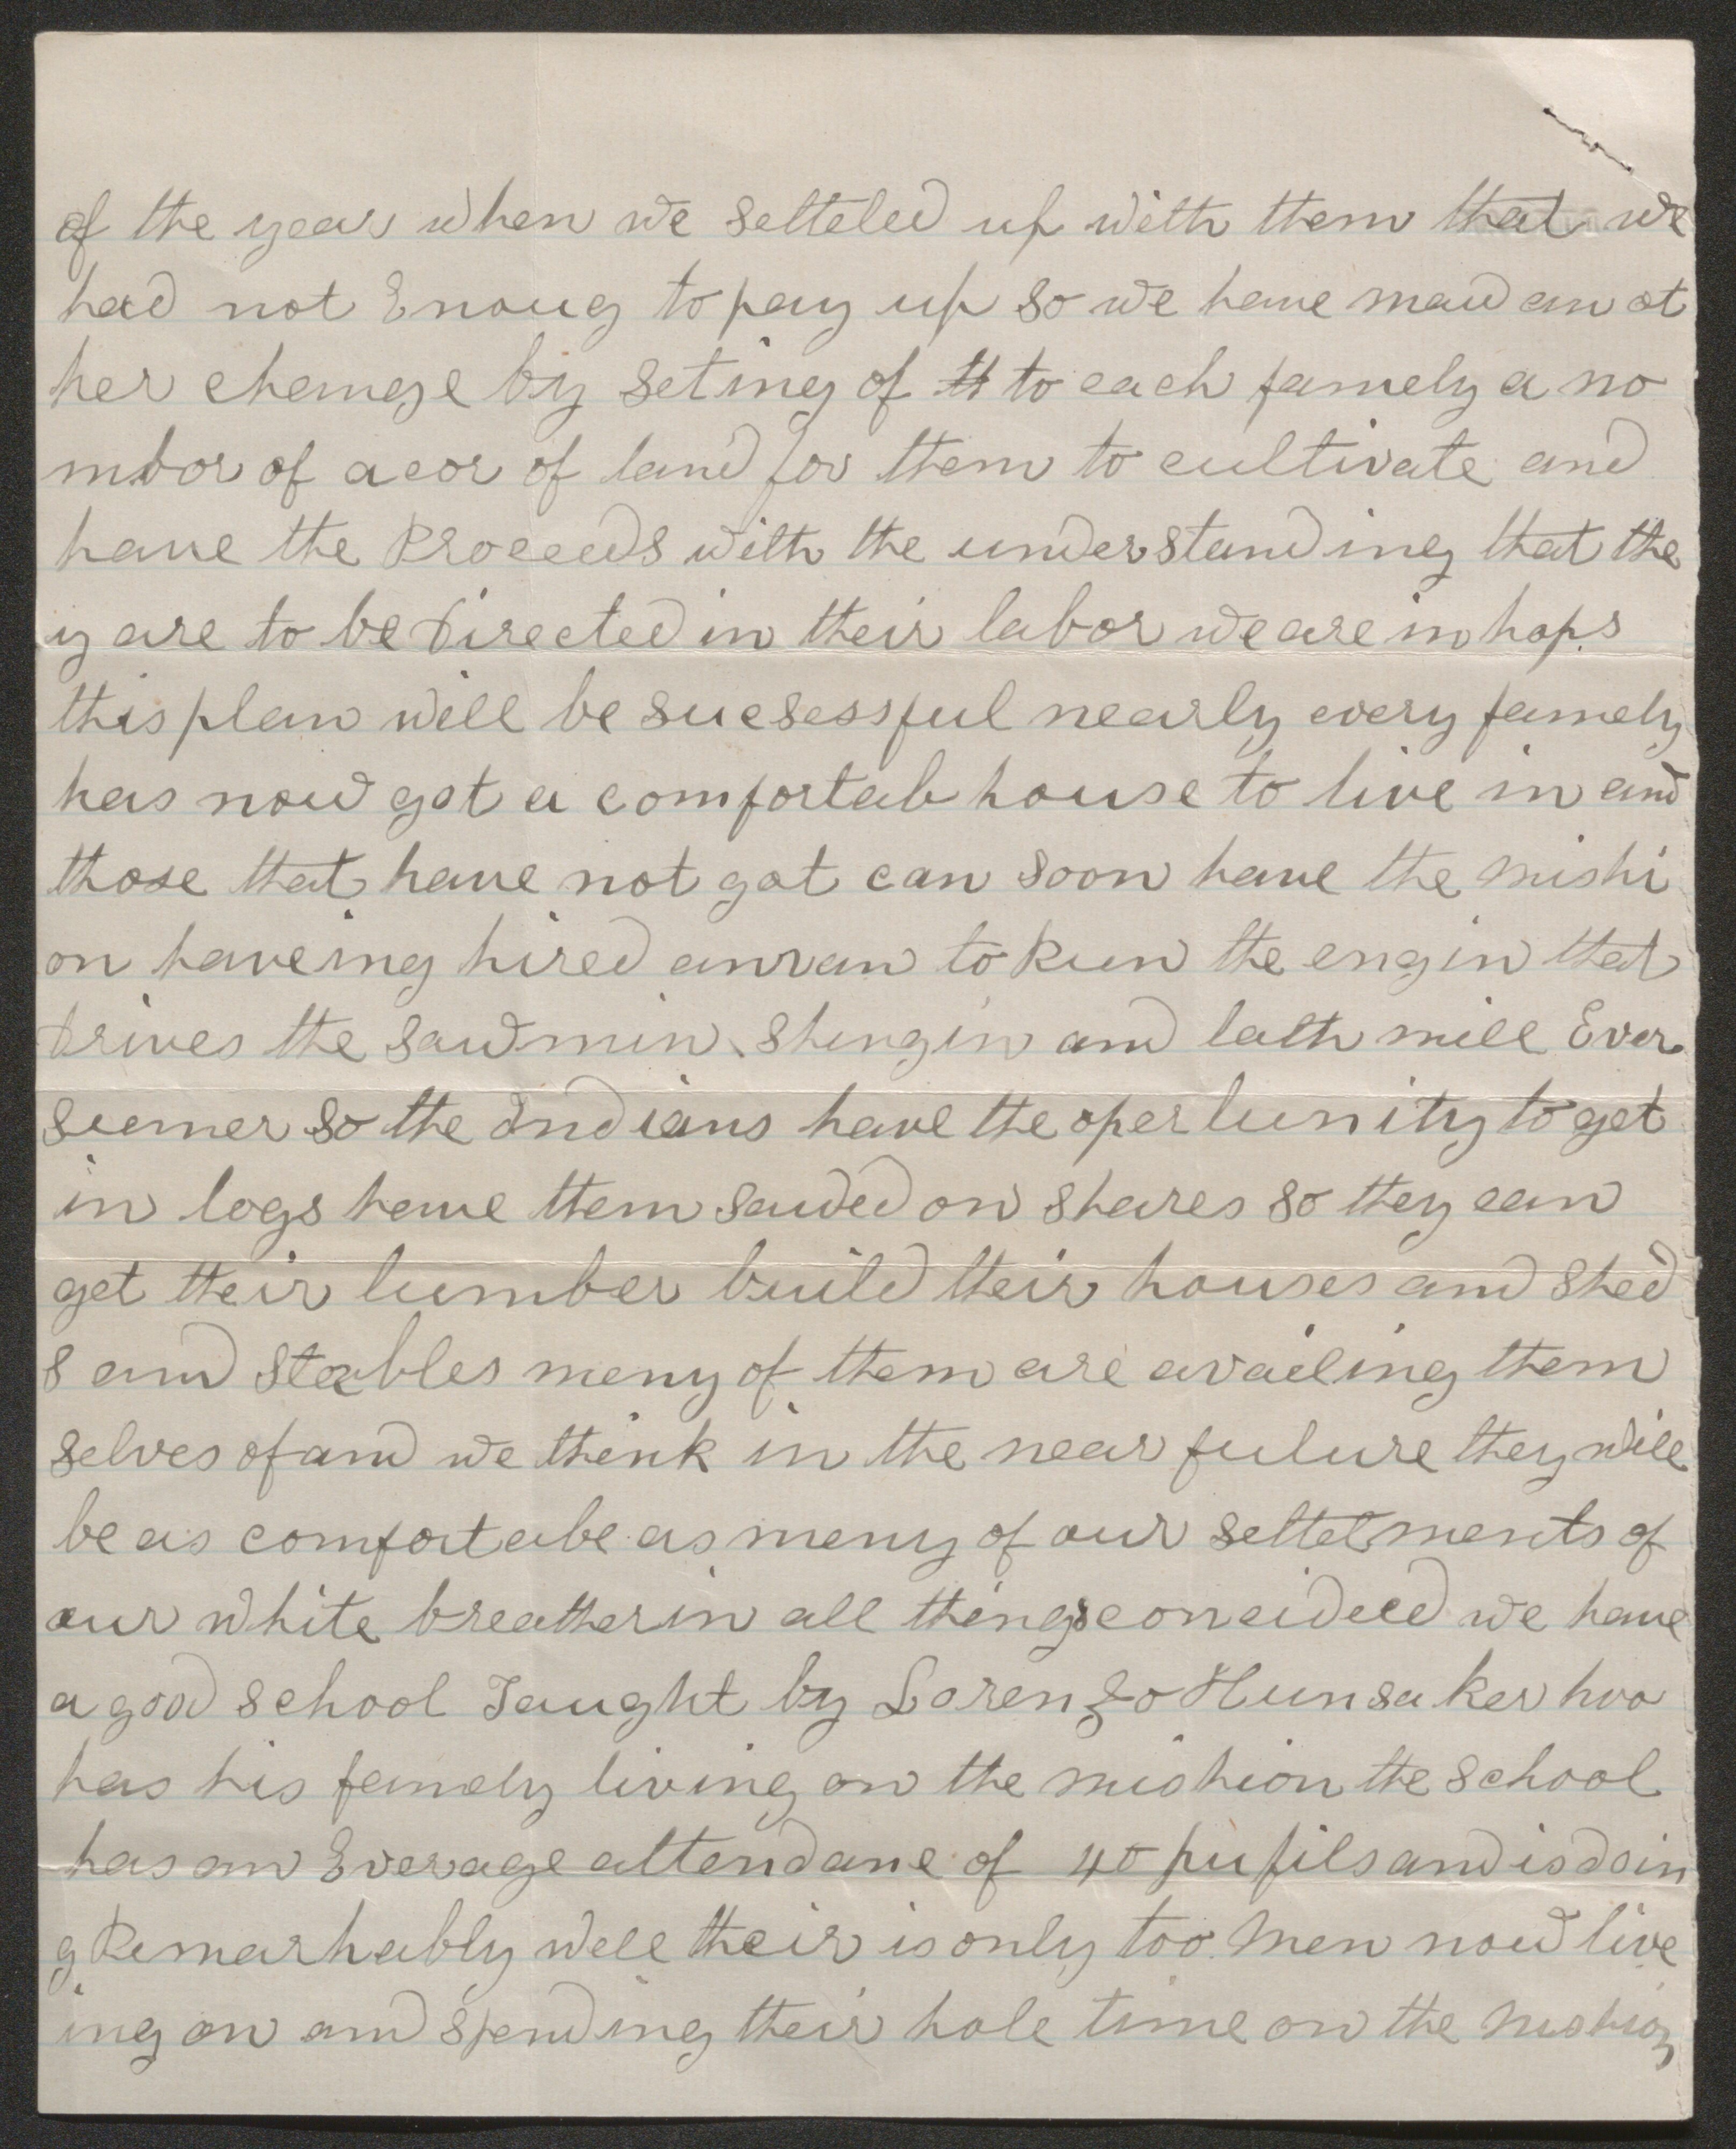 of the year when we setteled up with them that we
had not Enoug to pay up so we have mad an ot
her change by seting of to each famely a no
mbor of acor of land for them to cultivate and
have the Proceeds with the understanding that the
y are to be directed in their labor we are in hops
this plan will be sucsessful nearly every famely
has now got a comfortab house to live in and
those that have not got can soon have the mishi
on haveing hired to Run the engin that
drives the and lath mill Ever
sumer so the Indians have the opertunity to get
in logs have them sawed on shares so they can
get their lumber build their houses and shed
s and stables meny of them are availing them
selves of and we think in the near future they will
be as comfortabe as meny of our settelments of
our white breatherin all things we have
a good school Taught by Lorenzo Hunsaker hoo
has his famely living on the mishion the school
has an Everage attendane of 40 pupils and is doin
g Remarkably well their is only too men now live
ing on and spending their hole time on the mishion